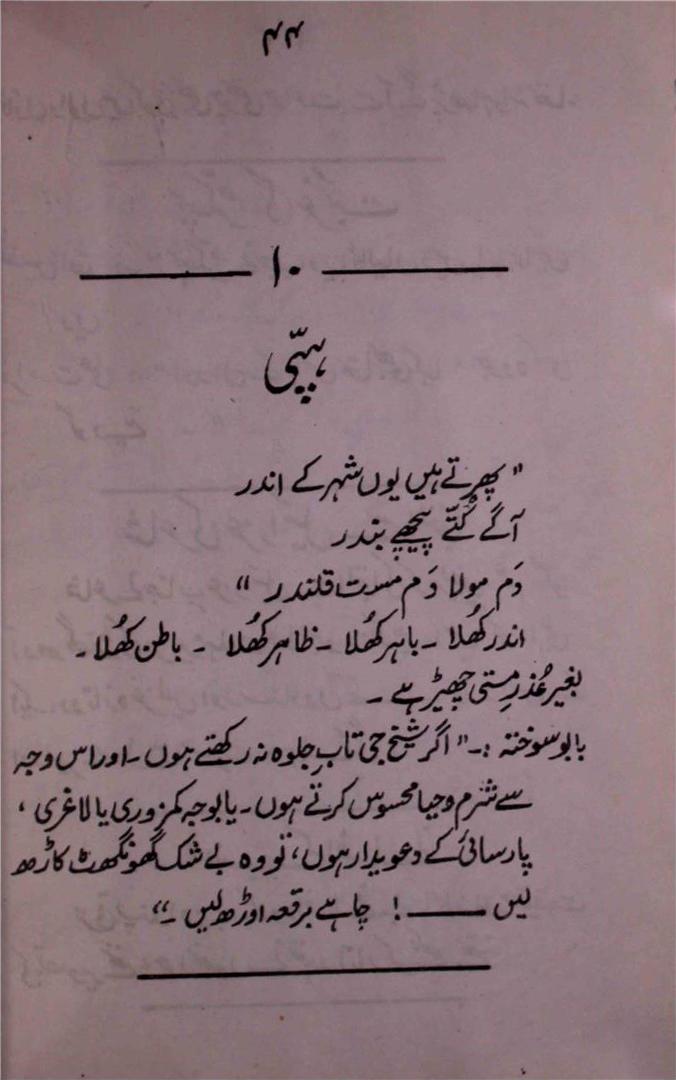 ۴۴
۱۰
ہپّی
"پھرتے ہیں یوں شہر کے اندر
آگے کُتّے پیچھے بندر
دَم مولا دَم مست قلندر"
اندر کھُلا ۔ باہر کھُلا ۔ ظاہر کھُلا ۔ باطن کھُلا ۔
بغیر عُذرِ مستی چھیڑ ہے ۔
بابو سوختہ :۔ "اگر شیخ جی تابِ جلوہ نہ رکھتے ہوں ۔ اور اس وجہ
سے شرم و حیا محسوس کرتے ہوں ۔ یا بوجہ کمزوری یا لاغری ،
پارسائی کے دعویدار ہوں، تو وہ بے شک گھونگھٹ کاڑھ
لیں ——— ! چاہے برقعہ اوڑھ لیں ۔"